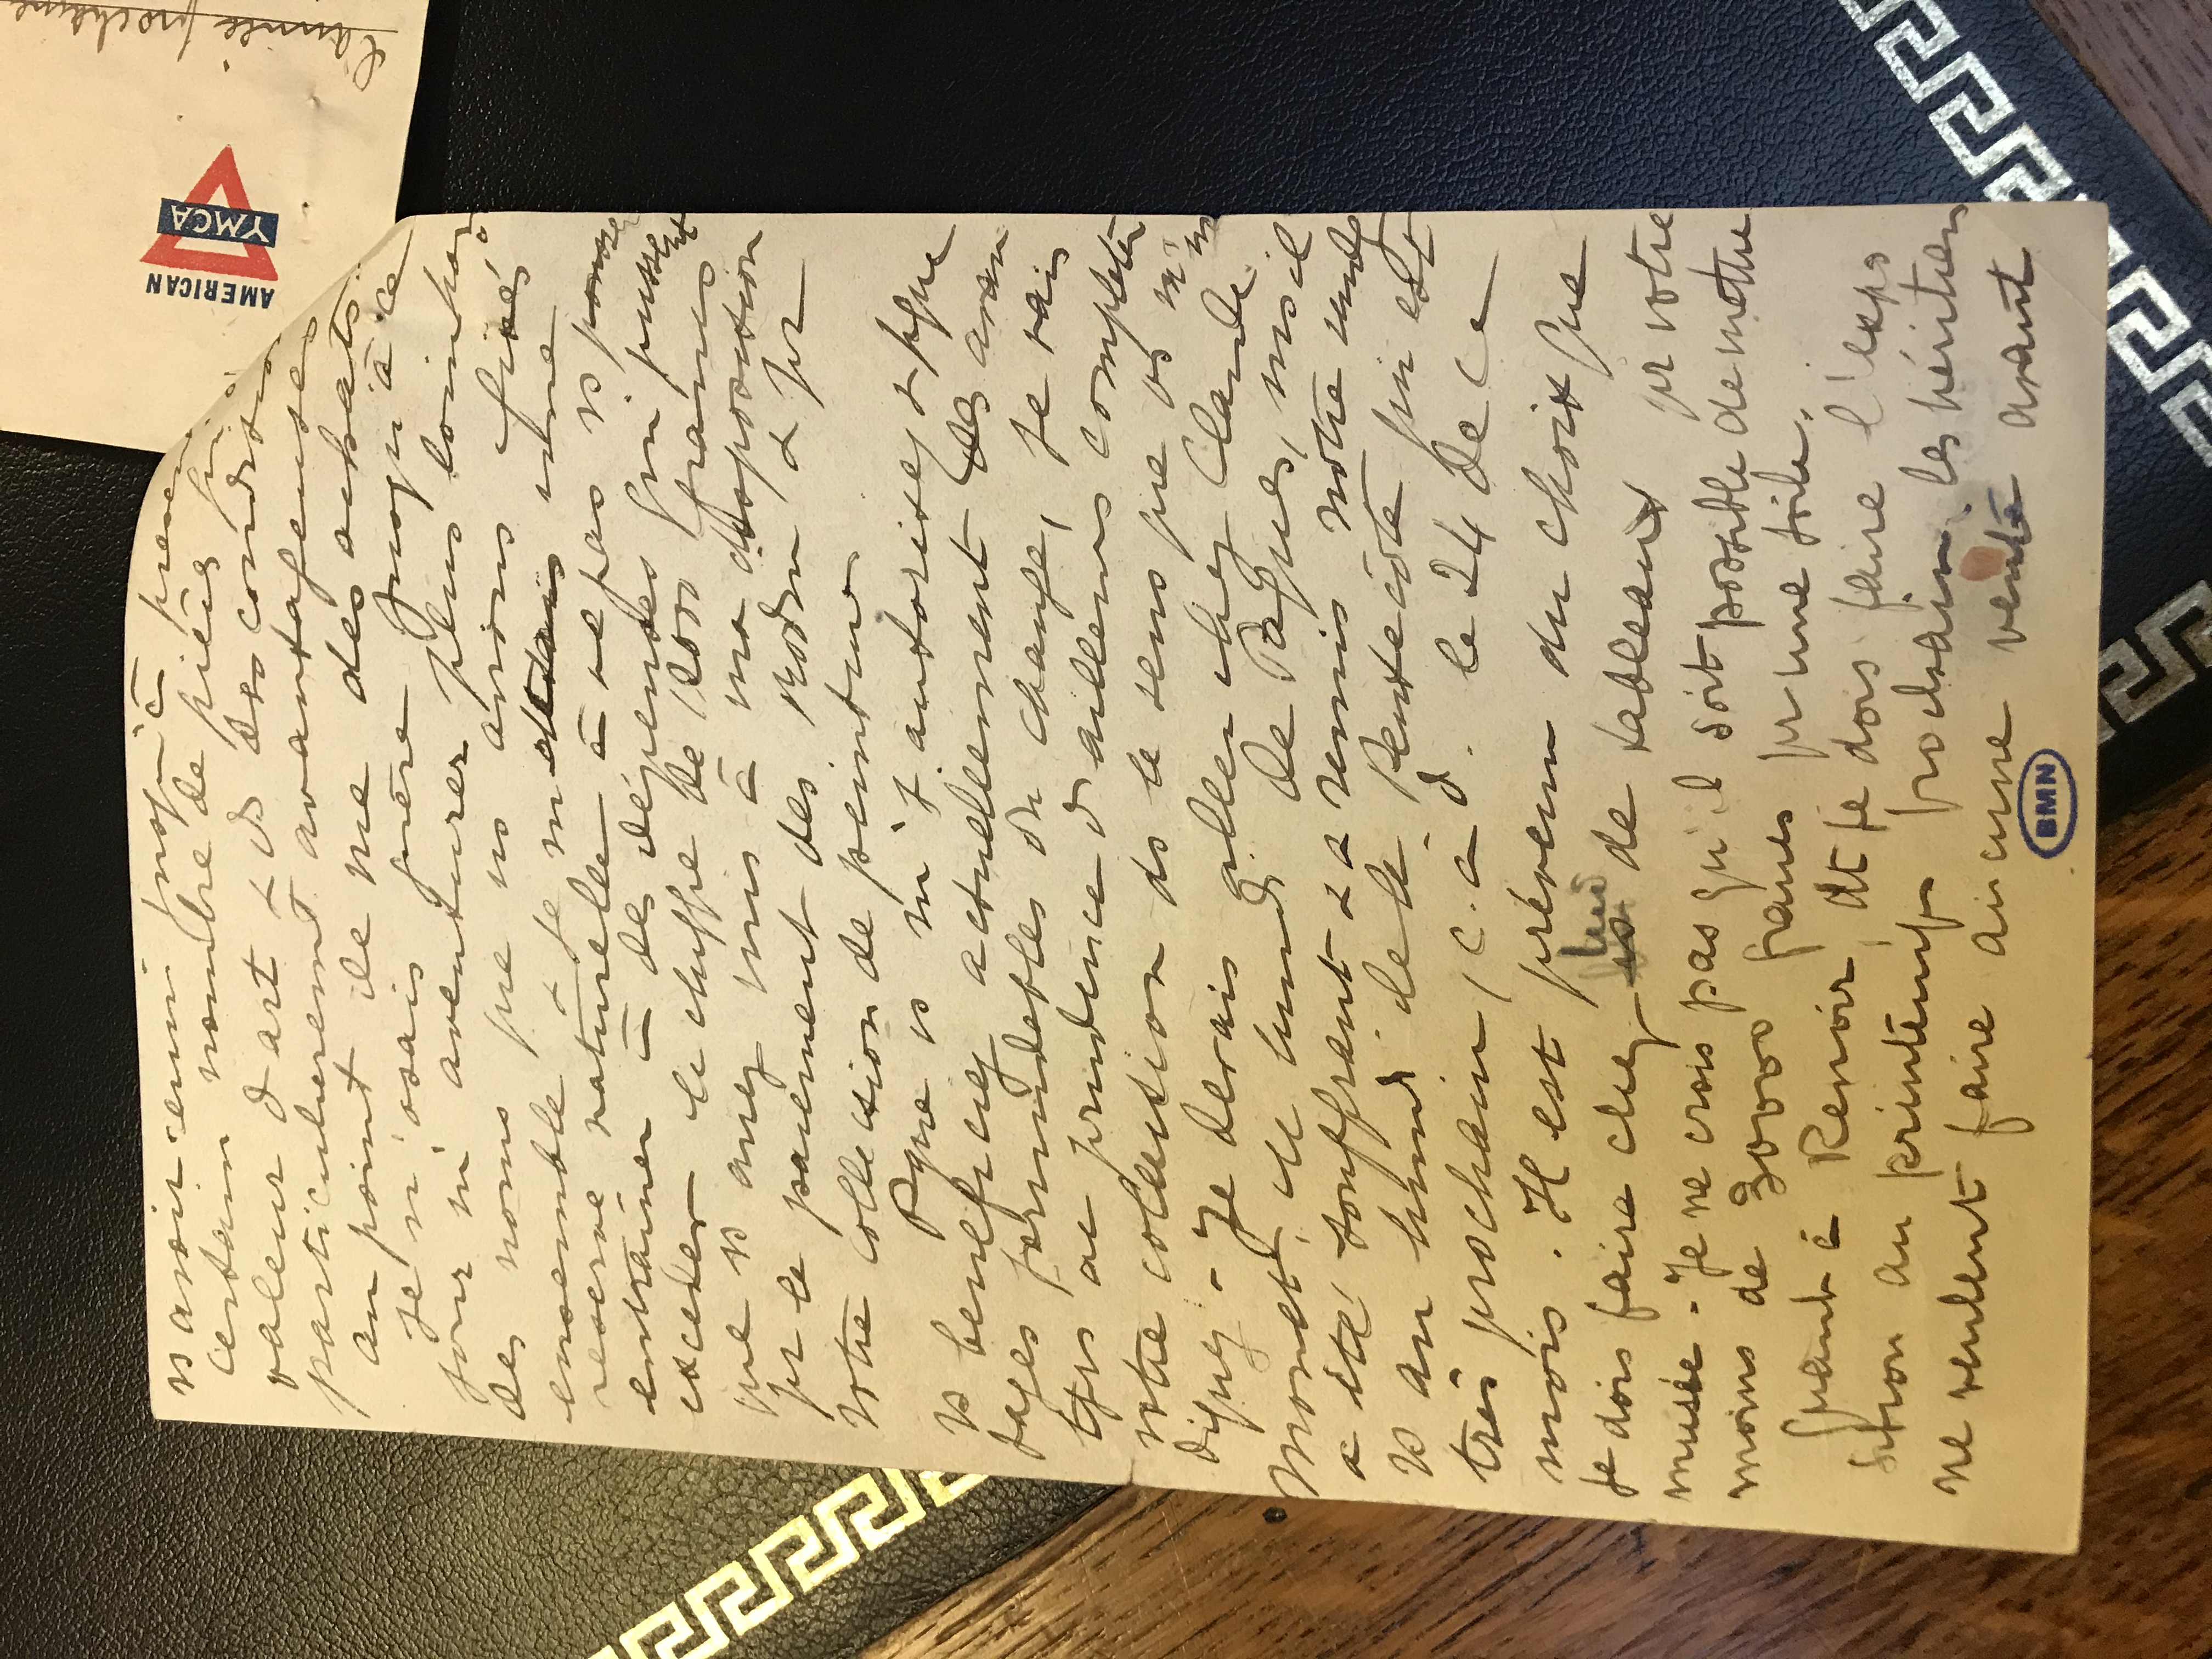 l'année prochaine
AMERICAN
YMCA
vs avoir remis jusqu'à présen
certain nombre de pièces
valeur d'art à des conditions
particulièrement avantageuses
au point de vue des achats.
Je n'osais guère jusqu'à ce
jour m'aventurer plus loin ho
des noms que ns avions fixés
ensemble & je m'étais une
réserve naturelle à ne pas vs
entraîner à des dépenses qui pussent
excéder le chiffre de 1200 francs
que vs avez mis à ma disposition
pr le paiement des Rodin & pr
votre collection de peinture
Pque vs m'y autorisez & que
vs bénéficiez actuellement des avan
tages formidables du change, je vais
avec prudence d'ailleurs compléter
votre collection ds le sens que vs m'in
diquez - Je devais aller chez Claude
Monet, le lundi de Pâques, mais il
a été souffrant & a remis notre rendez
vs au lundi de la Pentecôte qui est
très prochain (c. à d. le 24 de ce
mois. Il est prévenu du choix que
je dois faire chez lui de tableaux pr votre
musée - Je ne crois pas qu'il soit possible de mettre
moins de 30000 francs pr une toile.
Quant à Renoir, dt je dois faire l'expo
sition au printemps prochain, les héritiers
ne veulent faire aucune vente avant
BMN